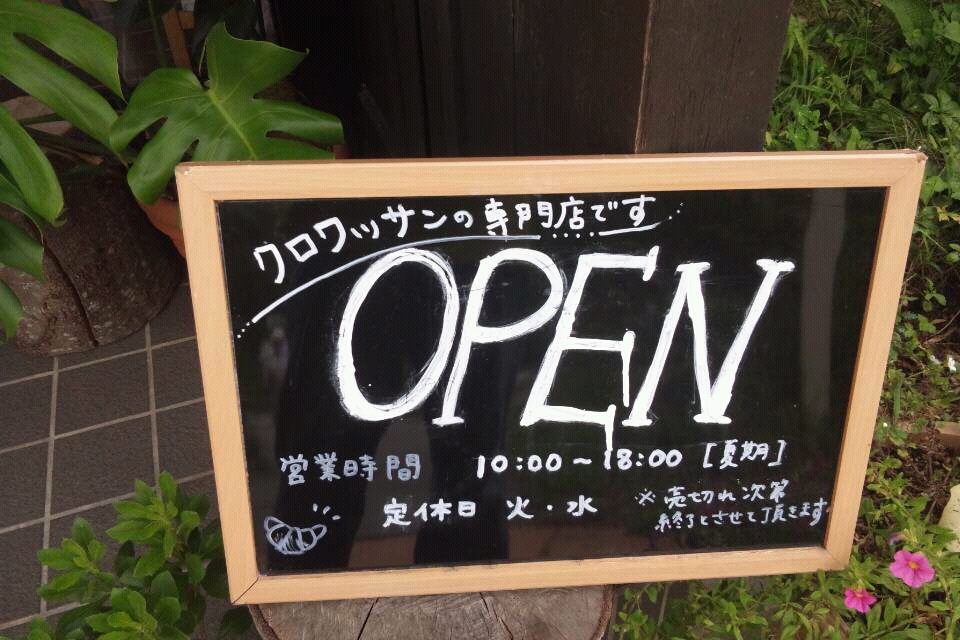 クロワッサンの専門店です
OPEN
営業時間 10:00～18:00 [夏期]
定休日 火・水
※売切れ次第
終了とさせて頂きます